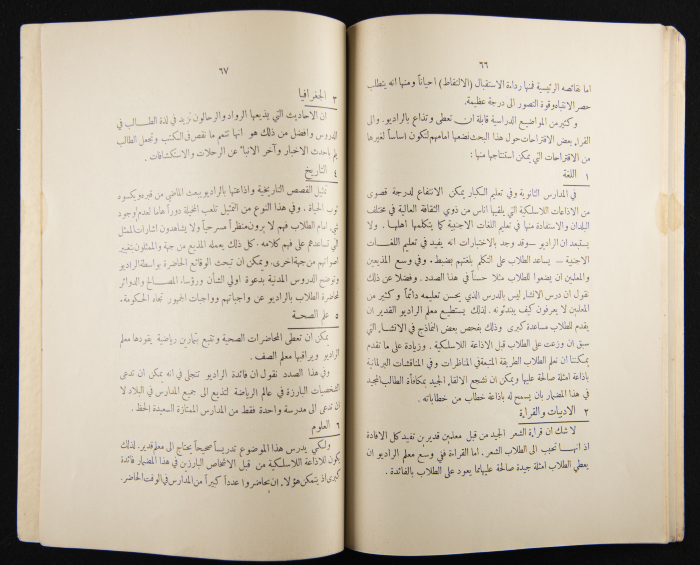 ٦٦
اما نقائصه الرئيسية فمنها رداءة الاستقبال (الالتقاط) احياناً ومنها انه يتطلب
حصر الانتباه وقوة التصور الى درجة عظيمة.
وكثير من المواضيع الدراسية قابلة ان تعطى وتذاع بالراديو. والى
القراء بعض الاقتراحات حول هذا البحث نضعها امامهم لتكون اساساً لغيرها
من الاقتراحات التي يمكن استنتاجها منها :
١ اللغة
في المدارس الثانوية وفي تعليم الكبار يمكن الانتفاع لدرجة قصوى
من الاذاعات اللاسلكية التي يلقيها اناس من ذوي الثقافة العالية في مختلف
البلدان والاستفادة منها في تعليم اللغات الاجنبية كما يتكلمها اهلها. ولا
يستبعد ان الراديو – وقد وجد بالاختبارات انه يفيد في تعليم اللغات
الاجنبية – يساعد الطلاب على التكلم بلغتهم بضبط. وفي وسع المذيعين
والمعلمين ان يضعوا للطلاب مثلا حسناً في هذا الصدد. وفضلا عن ذلك
نقول ان درس الانشاء ليس بالدرس الذي يحسن تعليمه دائماً وكثير من
المعلمين لا يعرفون كيف يبتدئونه. لذلك يستطيع معلم الراديو القدير ان
يقدم للطلاب مساعدة كبرى وذلك بفحص بعض النماذج في الانشاء التي
سبق ان وزعت على الطلاب قبل الاذاعة اللاسلكية. وزيادة على ما تقدم
يمكننا ان نعلم الطلاب الطريقة المتبعة في المناظرات وفي المناقشات البرلمانية
باذاعة امثلة صالحة عليها ويمكن ان نشجع الالقاء الجيد بمكافأة الطالب المجيد
في هذا المضمار بان يسمح له باذاعة خطاب من خطاباته.
٢ الادبيات والقراءة
لا شك ان قراءة الشعر الجيد من قبل معلمين قديرين تفيد كل الافادة
اذ انها تحبب الى الطلاب الشعر. اما القراءة ففي وسع معلم الراديو ان
يعطي الطلاب امثلة جيدة صالحة عليها مما يعود على الطلاب بالفائدة.
٦٧
٣ الجغرافيا
ان الاحاديث التي يذيعها الرواد والرحالون تزيد في لذة الطالب في
الدروس وافضل من ذلك هو انها تتمم ما نقص في الكتب وتجعل الطالب
يلم باحدث الاخبار وآخر الانباء عن الرحلات والاستكشافات.
٤ التاريخ
تمثيل القصص التاريخية واذاعتها بالراديو يبعث الماضي من قبره ويكسوه
ثوب الحياة. وفي هذا النوع من التمثيل تلعب المخيلة دوراً هاما لعدم وجود
شيء امام الطلاب فهم لا يرون منظراً مسرحياً ولا يشاهدون اشارات الممثل
التي تساعدهم على فهم كلامه. كل ذلك يعمله المذيع من جهة والممثلون بتغيير
اصواتهم من جهة اخرى. ويمكن ان تبحث الوقائع الحاضرة بواسطة الراديو
وتوضع الدروس المدنية بدعوة اولي الشأن ورؤساء المصالح والدوائر
لمحاضرة الطلاب بالراديو عن واجباتهم وواجبات الجمهور تجاه الحكومة.
٥ علم الصحة
يمكن ان تعطى المحاضرات الصحية وتتبع بتمارين رياضية يقودها معلم
الراديو ويراقبها معلم الصف.
وفي هذا الصدد نقول ان فائدة الراديو تتجلى في انه يمكن ان تدعى
الشخصيات البارزة في عالم الرياضة لتذيع الى جميع المدارس في البلاد لا
ان تدعى الى مدرسة واحدة فقط من المدارس الممتازة السعيدة الحظ.
٦ العلوم
ولكي يدرس هذا الموضوع تدريساً صحيحاً يحتاج الى معلم قدير. لذلك
يكون للاذاعة اللاسلكية من قبل الاشخاص البارزين في هذا المضمار فائدة
كبرى اذ يتمكن هؤلاء ان يحاضروا عدداً كبيراً من المدارس في الوقت الحاضر.